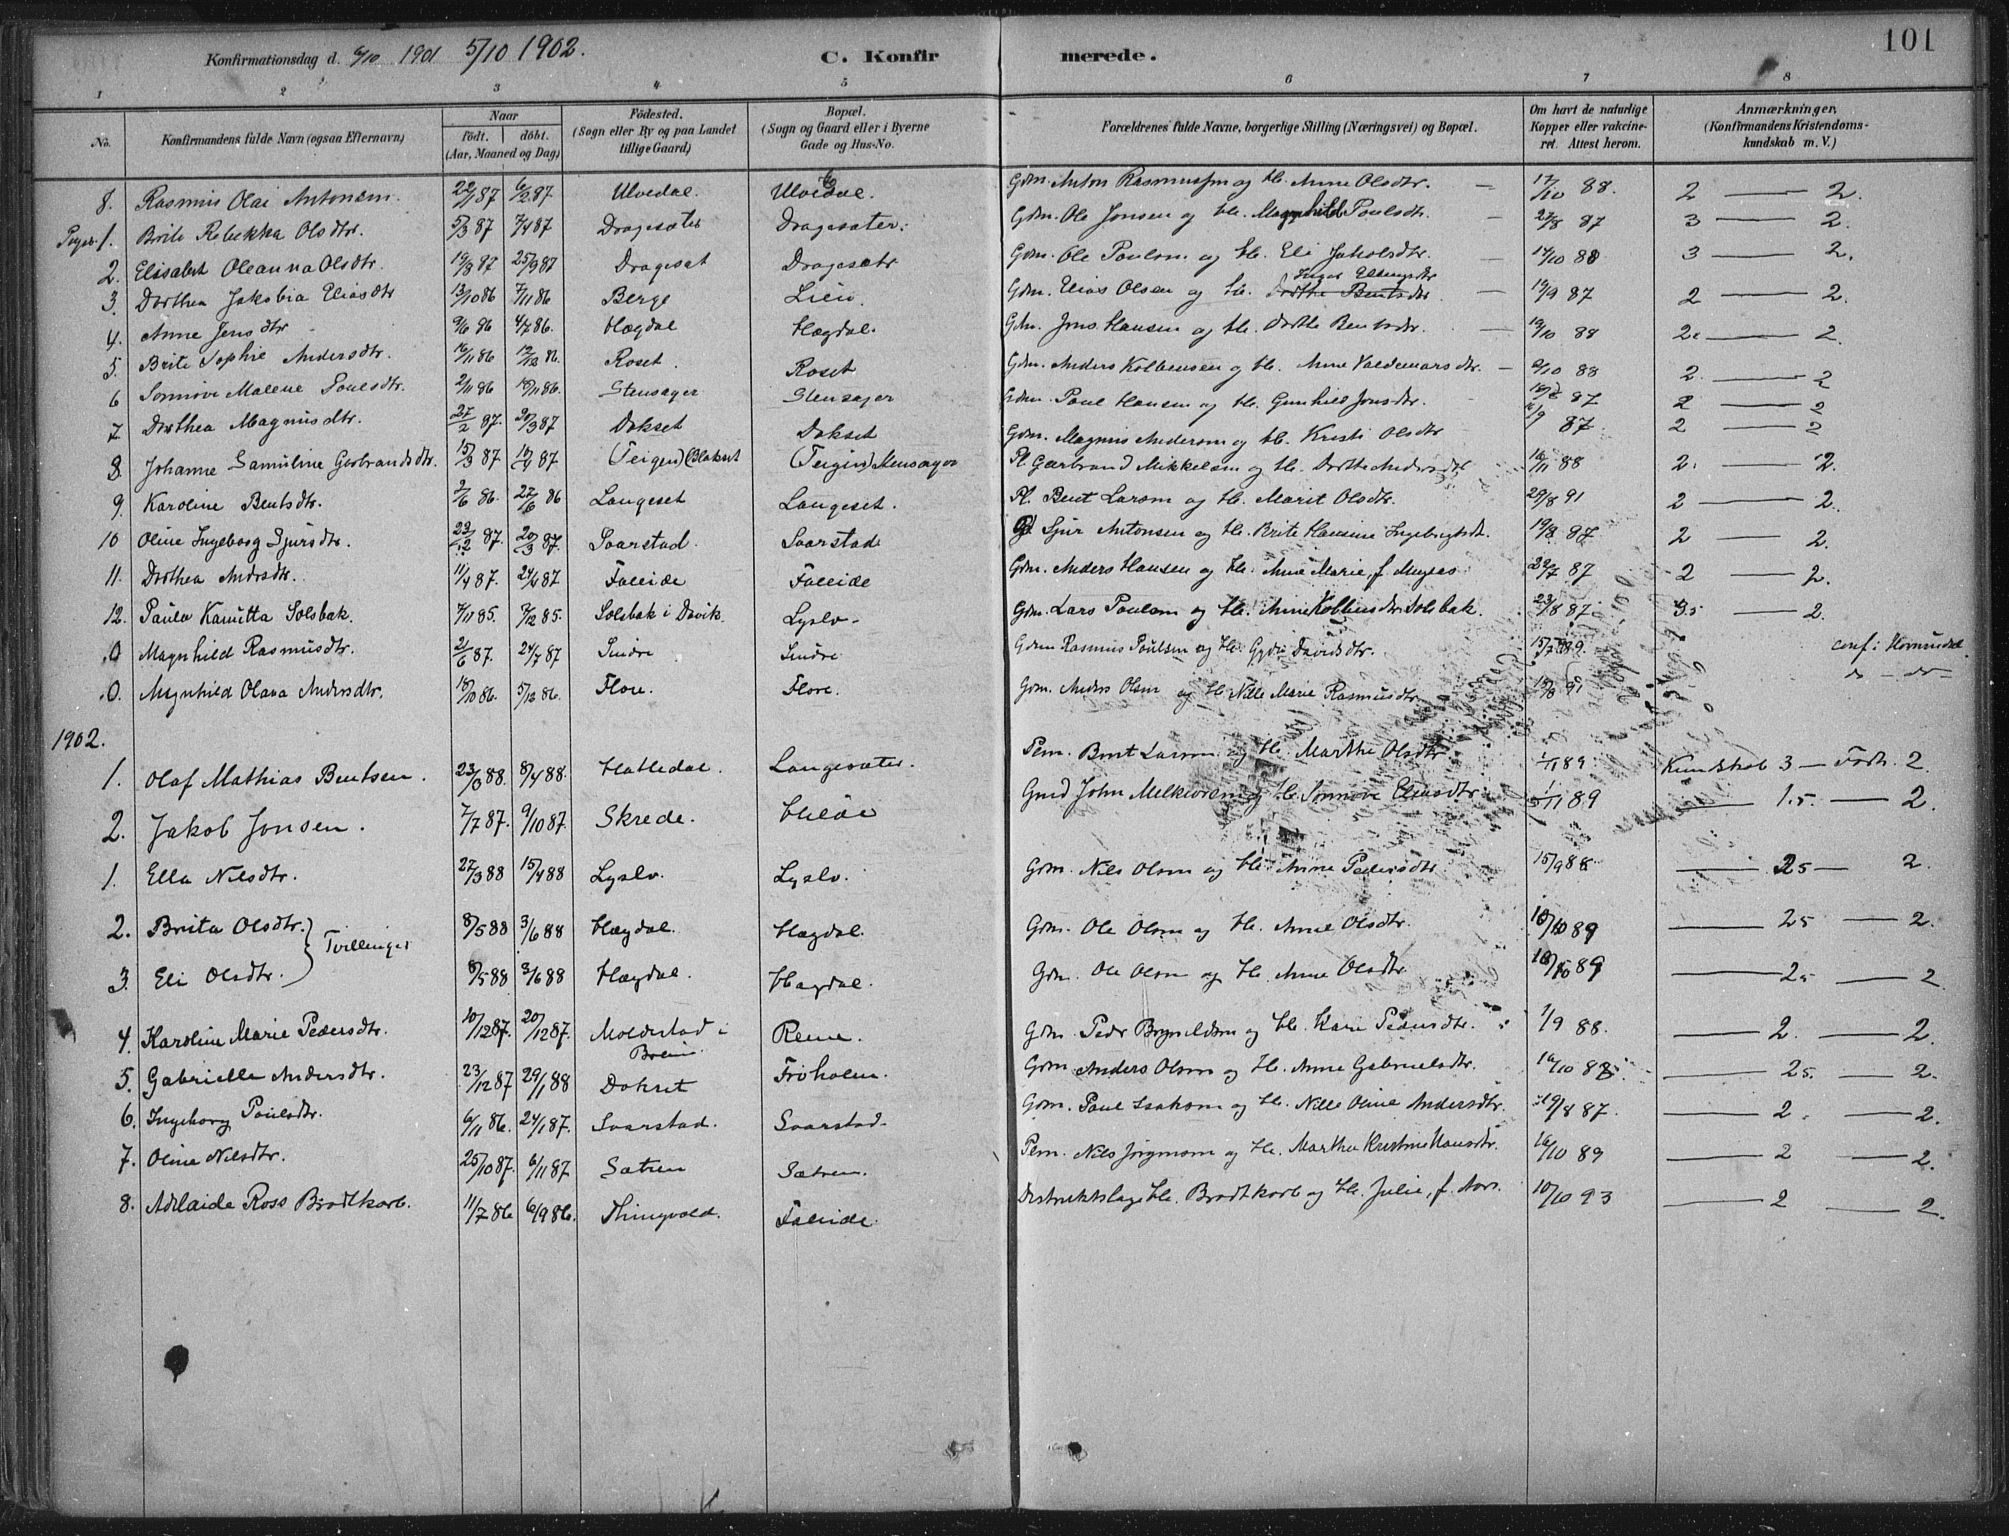 101
Konfirmationsdag d. 6/10 1901 5/10 1902. C. Konfirmerede.
1 2 3 4 5 6 7 8
No. Konfirmandens fulde Navn (ogsaa Efternavn) Naar født. døbt. (Aar, Maaned og Dag) Fødested. (Sogn eller By og paa Landet tillige Gaard) Bopæl. (Sogn og Gaard eller i Byerne Gade og Hus-No. Forældrenes fulde Navne, borgerlige Stilling (Næringsvei) og Bopæl. Om havt de naturlige Kopper eller vakcineret. Attest herom. Anmærkninger, (Konfirmandens Kristendomskundskab m. V.)
8. Rasmus Olai Antonsen. 22/1 87 6/2 87. Ulvedal. Ulvedal. Gdm. Anton Rasmussen og H. Anne Olsdtr. 17/10 88. 2 — 2.
1. Brite Rebekka Olsdtr. 5/3 87 7/4 87 Dragesæter Dragesæter. Gdm. Ole Jonsen og H. Magnhild Poulsdtr. 27/8 87 3 2.
2. Elisabet Oleanna Olsdtr. 19/8 87 25/9 87 Drageset Dragesætr Gdm. Ole Poulsen og H. Eli Jakobsdtr. 17/10 88 3 — 2.
3. Dorthea Jakobia Eliasdtr 13/10 86 7/11 86 Berge Lien. Gdm. Elias Olsen og H. Dorthe Bentsdtr. 19/9 87 2 — 2.
4. Anne Jensdtr 9/6 86 4/7 86. Hægdal Hægdal. Gdm. Jens Hansen og H. Dorthe Bentsdtr. 19/10 88 2. — 2.
5. Brite Sophie Andersdtr. 16/11 86 12/12 86. Roset. Roset Gdm. Anders Kolbensen og H. Anne Valdemarsdtr. 88 2. — 2
6 Sønnøve Malene Poulsdtr. 2/11 86 Stensager Stensager Gdm. Paul Hansen og H. Gunhild Jonsdtr. 87 2 — 2
7. Dorthea Magnusdtr. 27/2 87. 20/3 87 Dokset Dokset Gdm. Magnus Andersen og H. Kristi Olsdtr 87. 2 — 2
8. Johanne Samuline Gerbrandsdtr. 15/3 87 87 Teigen Teigen Stensager Pl. Gerbrand Mikkelsen og H. Dorthe Andersdtr 88 2. — 2.
9. Karoline Bentsdtr. 2/6 86. 27/6 86 Langeset Langeset. Pl. Bent Larsen og H. Marit Olsdtr. 29/8 91 2 — 2.
10 Oline Ingeborg Sjursdtr. 23/12 87. 20/3 87. Svarstad. Svarstad Sjur Antonsen og H. Brite 19/8 87 2 — 2.
11. Dorthea Andersdtr. 11/4 87. 24/4 87 Faleide Faleide Gdm. Anders Hansen og H. Anne Marie, f. 22/7 87 2 — 2.
12. Paula Kamitta Solsbak. 7/11 85. 7/12 85. Solsbak i Davik. Lyslo. Gdm. Lars Poulsen og H. Anne Solsbak. 23/8 87. — 2.
0 Magnhild Rasmusdtr. 2/6 87. 24/7 87 Sindre Sindre Gdm Rasmus Poulsen og H. Davidsdtr. 89. conf: Hornindal
0. Magnhild Olava Andersdtr. 18/10 86. 5/12 86. Flore. Flore. Gdm. Anders Olsen og H. Nille Marie Rasmusdtr. 91 do — do —
1902.
1. Olaf Mathias Bentsen. 23/3 88. 8/4 88. Hatledal. Langesæter. Pem. Bent Larsen og H. Marthe Olsdtr. 89. Kundskab 3 — Forh. 2.
2. Jakob Jonsen. 7/7 87. 9/10 87. Skrede. John og H. Sønnøve Eliasdtr 89 — 1.5. — 2.
1. Ella Nilsdtr. 27/3 88 15/4 88 Lyslo. Lyslo. Gdm. Nils Olsen og H. Anne Pedersdtr 15/9 88 — 25 — 2.
2. Brita Olsdtr. } Tvillinger 8/5 88 3/6 88 Hægdal. Hægdal. Gdm. Ole Olsen og H. Anne Olsdtr. 18/10 89 — 25 — 2.
3. Eli Olsdtr. 8/5 88 3/6 88 Hægdal. Hægdal. Gdm. Ole Olsen og H. Anne Olsdtr 18/10 89 — 25 — 2.
4. Karoline Marie Pedersdtr. 10/12 87. 20/12 87. Moldestad i Breim. Rene. Gdm. Pedr og H. Kari Pedersdtr. 1/9 88. — 2. — 2.
5. Gabrielle Andersdtr. 23/12 87 29/1 88 Dokset Frøholm. Gdm. Anders Olsen og H. Anne Gabrielsdtr. 16/10 88. — 25. — 2.
6. Ingeborg Paulsdtr. 6/11 86. 24/1 87. Svarstad. Svarstad. Gdm. Paul Isaksen og H. Nille Oline Andersdtr. 19/8 87. — 2. — 2.
7. Oline Nilsdtr. 25/10 87. 6/11 87 Sætren Sætren. Pem. Nils Jørgensen og H. Marthe Kristine Hansdtr. 16/10 89 — 2 — 2.
8. Adelaide Ross Brodtkorb. 11/7 86 6/9 86. Thingvold. Faleide. Distriktslæge H. Brodtkorb og H. Julie, f. 10/10 93 — 2 — 2.